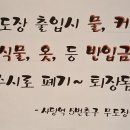 도장 출입시 물, 커
식물, 옷, 등 반입금
시로 폐기~ 퇴장됨
- 사당역 5번출구 무도장